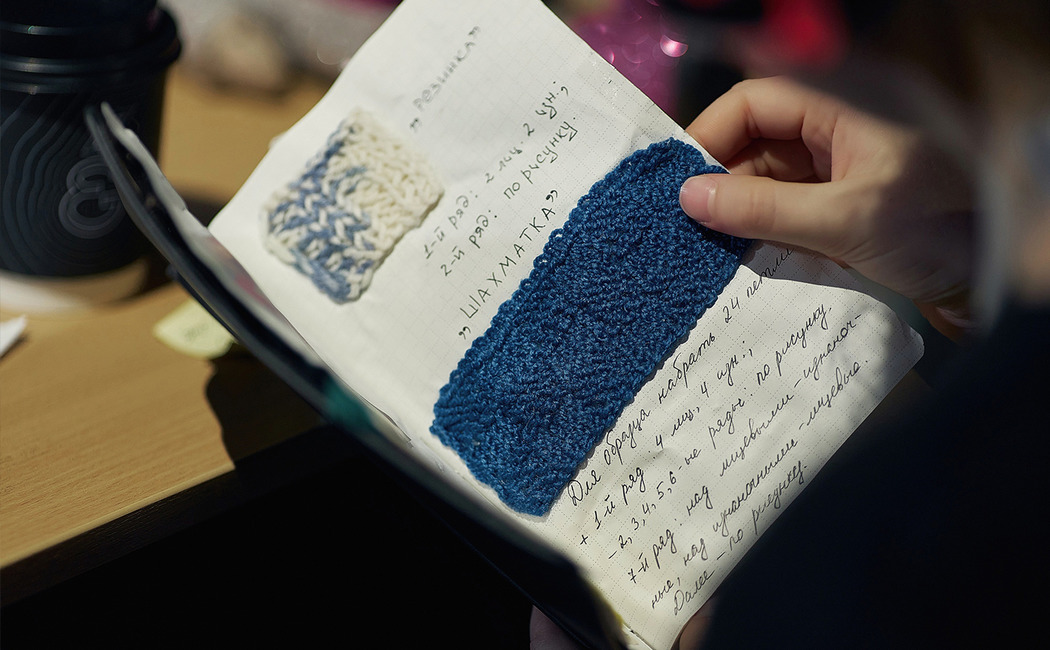 „РЕЗИНКА”
1-й ряд: 2 лиц. 2 изн.;
2-й ряд: по рисунку.
„ШАХМАТКА”
Для образца набрать 24 петли
+ 1-й ряд: 4 лиц, 4 изн.;
- 2,3,4,5,6-ые ряды: по рисунку
7-й ряд: над лицевыми-изнаноч-
ные, над изнаночными-лицевые.
Далее - по рисунку.
&